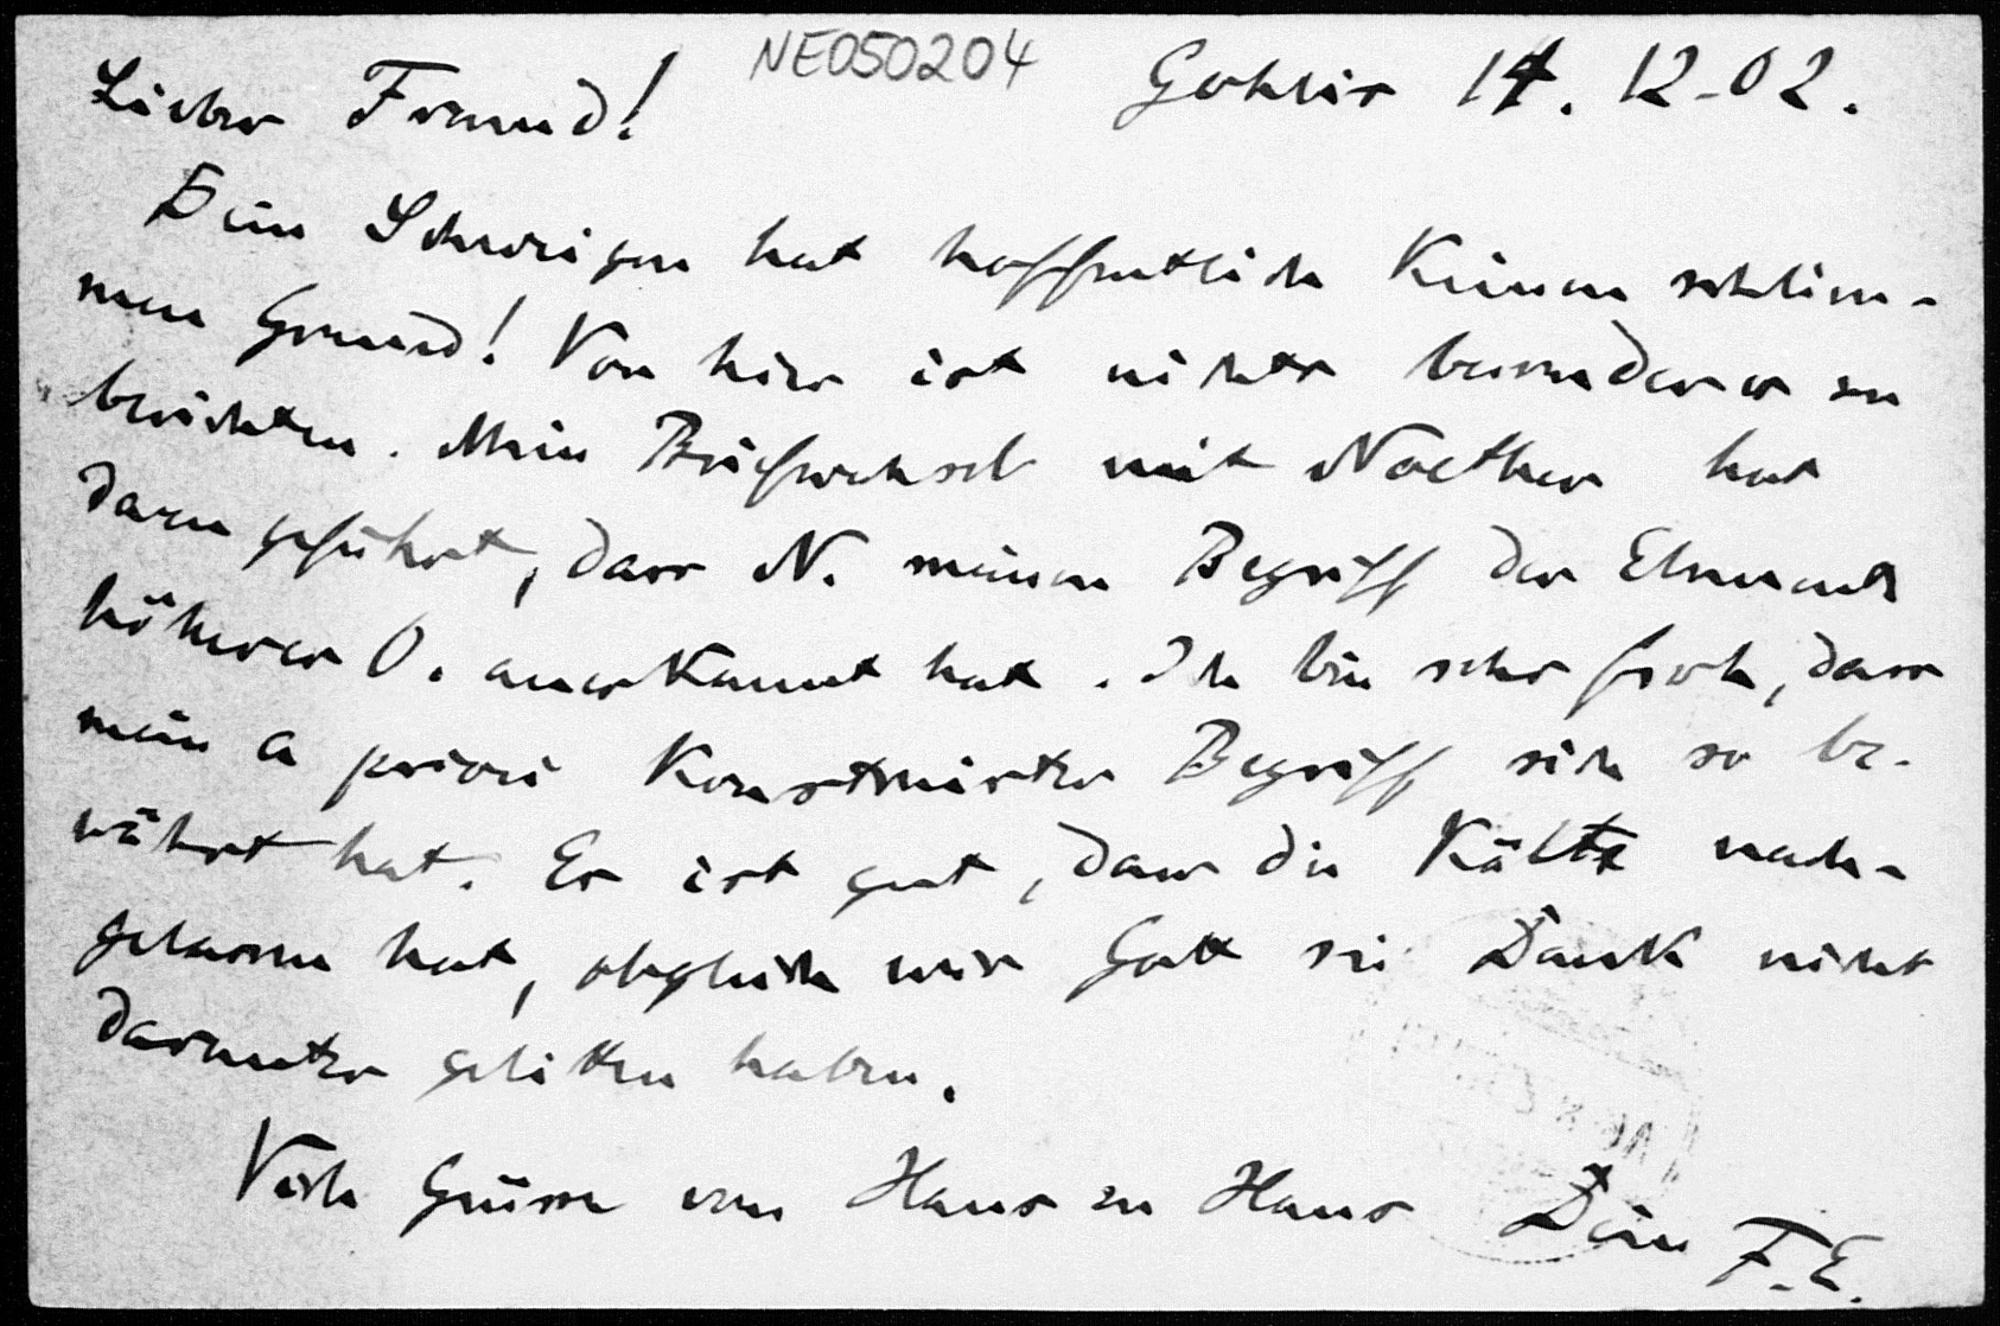 NE050204
Gohlis 14. 12-02.
Lieber Freund!
Dein Schweigen hat hoffentlich keinen schlim-
men Grund! Von hier ist nichts besonderes zu
berichten. Mein Briefwechsel mit Noether hat
dazu geführt, dass N. meinen Begriff der Elemente
höherer O. anerkannt hat. Ich bin sehr froh, dass
mein a priori konstruirter Begriff sich so be-
währt hat. Es ist gut, dass die Kälte nach-
gelassen hat, obgleich wir Gott sei Dank nicht
darunter gelitten haben.
Viele Grüsse von Haus zu Haus Dein F.E.